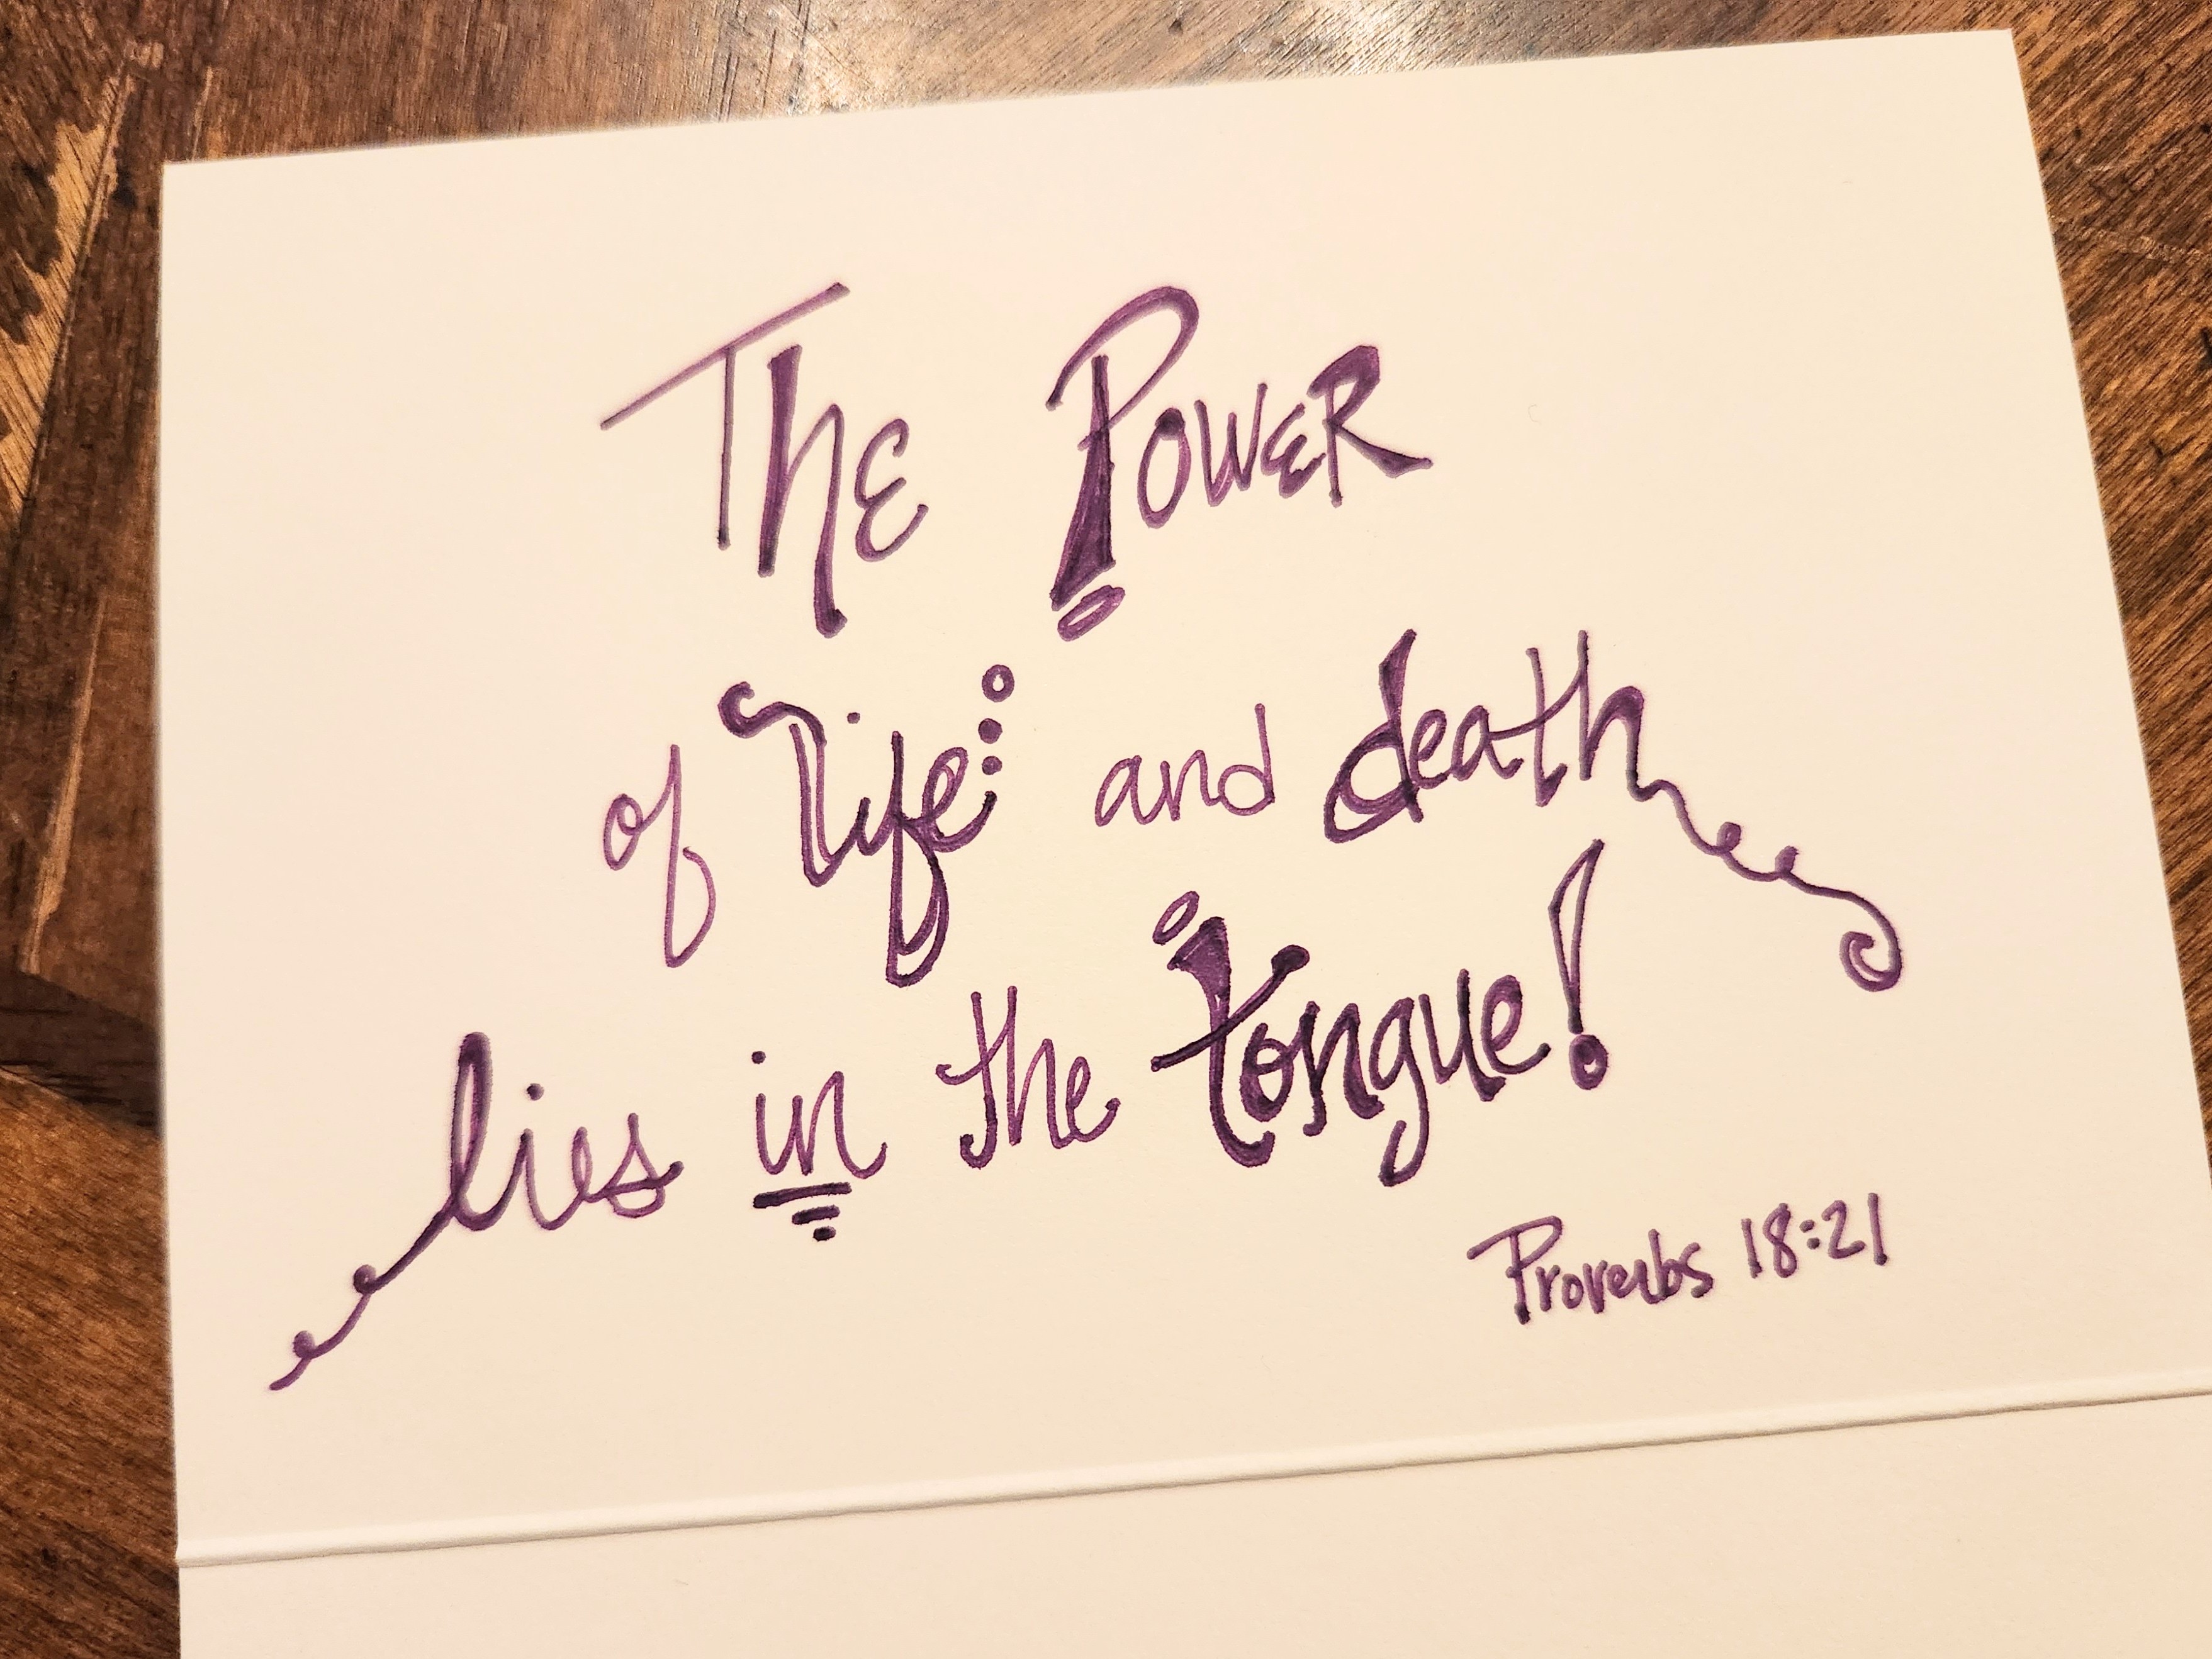 The Power
of life and death
lies in the tongue!
Proverbs 18:21